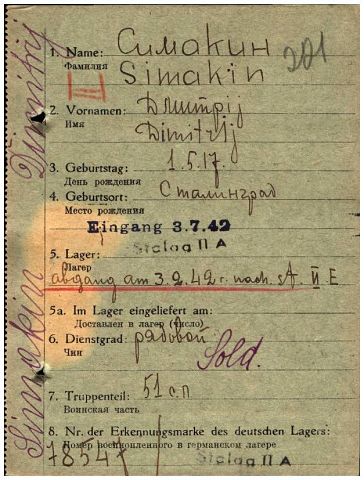 Simakin Dimitrij
201
1. Name: Симакин
Фамилия
Simakin
II
2. Vornamen: Дмитрij
Имя
Dimitrij
3. Geburtstag: 1.5.17.
День рождения
4. Geburtsort: Сталинград
Место рождения
Eingang 3.7.42
Stalag II A
5. Lager:
Лагерь
abgang am 3.9.42 г. nach. st. II E
5a. Im Lager eingeliefert am:
Доставлен в лагерь (число)
6. Dienstgrad: рядовой
Чин
Sold.
7. Truppenteil: 51 с.п
Воинская часть
8. Nr. der Erkennungsmarke des deutschen Lagers:
Номер военнопленного в германском лагере
78547
Stalag II A